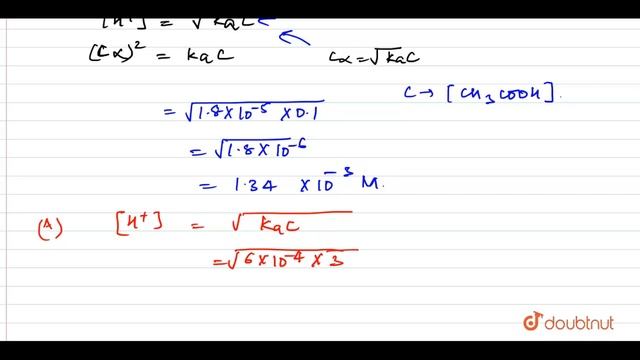 [H+] = √KaC
(Cα)² = KaC
Cα = √KaC
C → [CH3COOH].
= √1.8×10⁻⁵ ×0.1
= √1.8×10⁻⁶
= 1.34 ×10⁻³ M.
(A) [H+] = √KaC
= √6×10⁻⁴ × 3
doubtnut